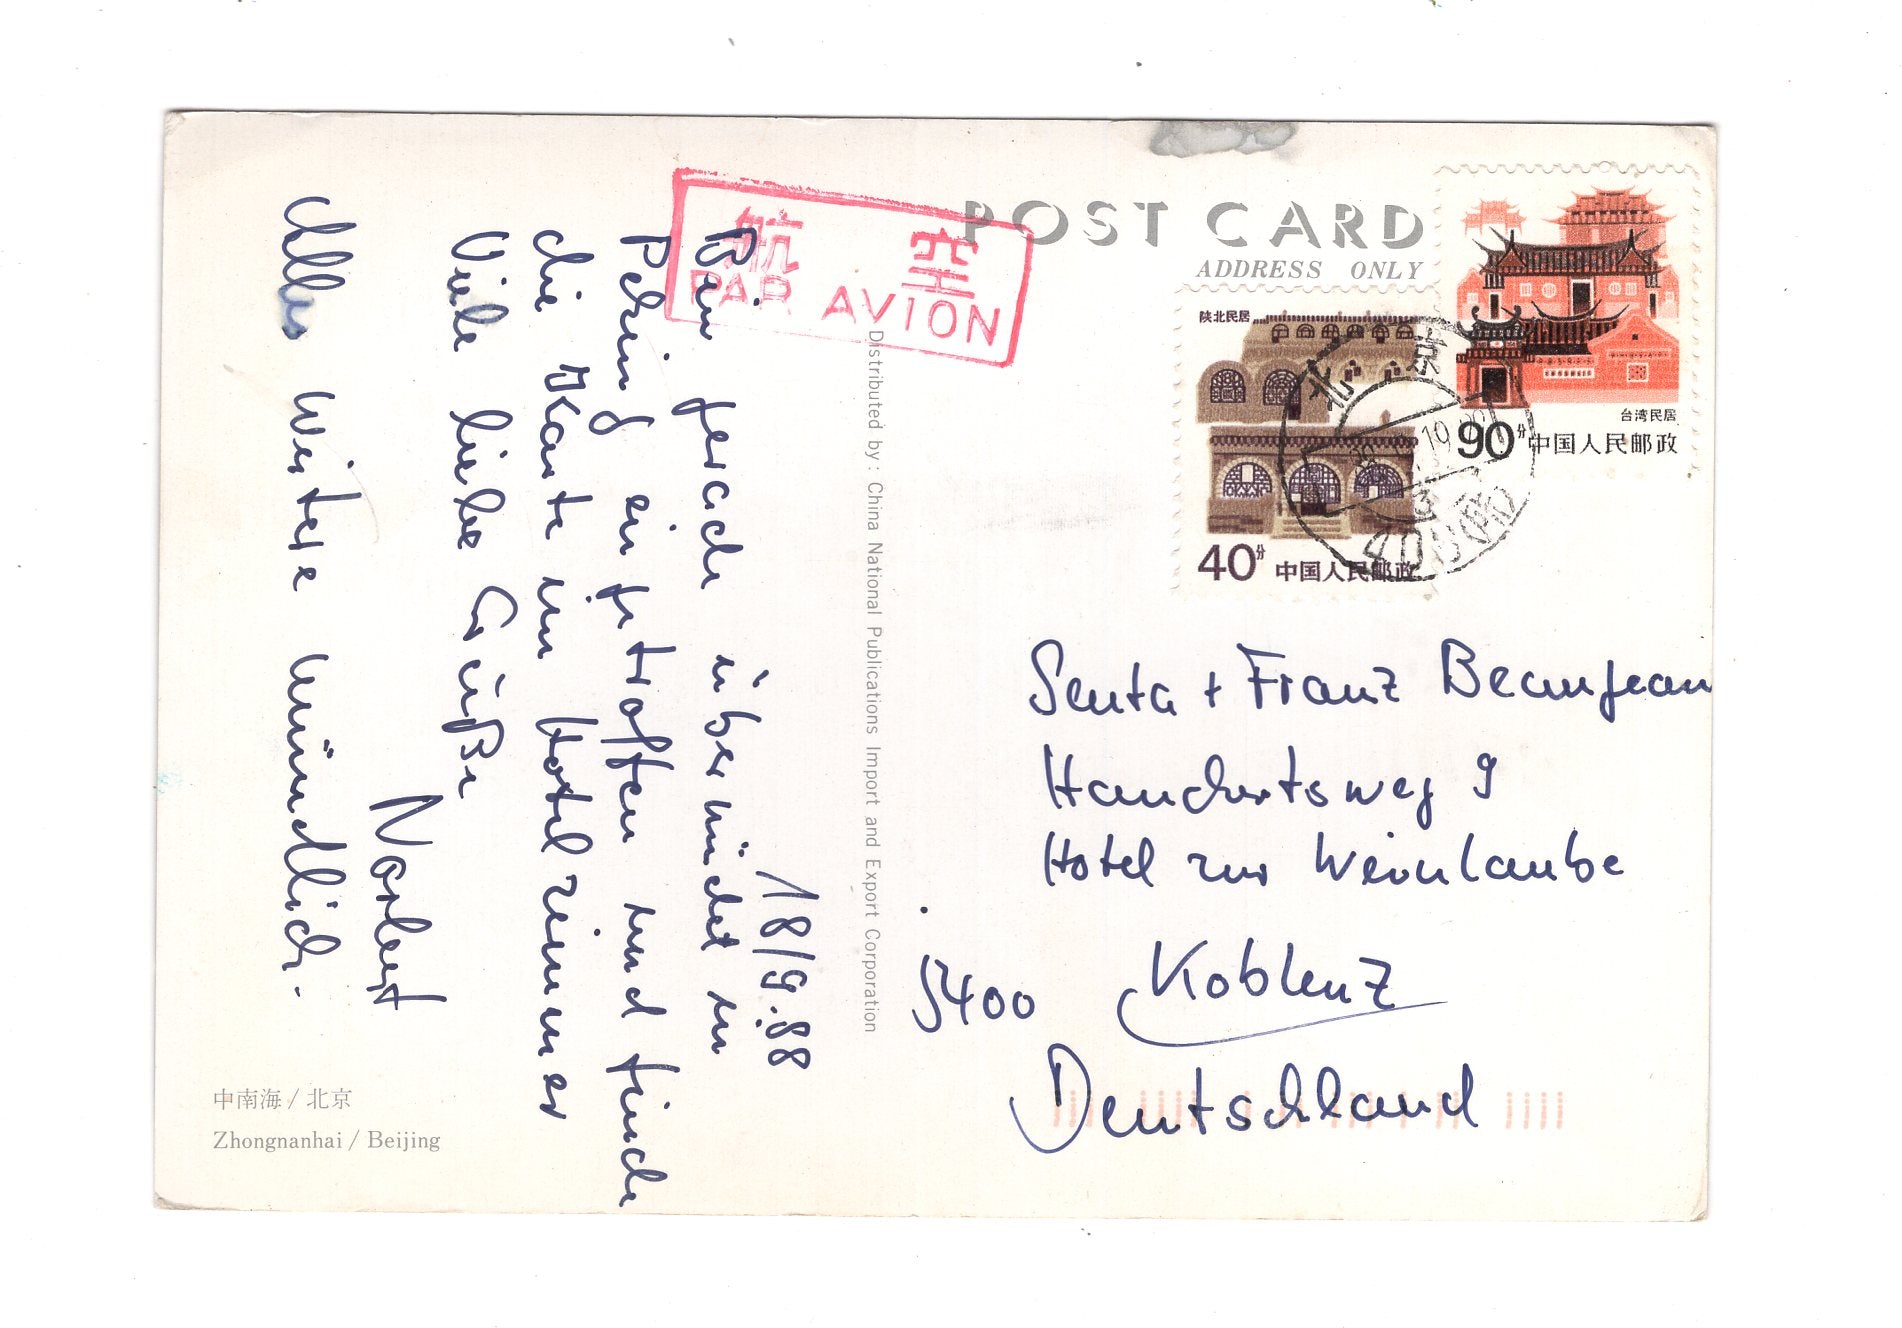 POST CARD
ADDRESS ONLY
航空
PAR AVION
陕北民居
40分 中国人民邮政
台湾民居
90分 中国人民邮政
北京
Distributed by: China National Publications Import and Export Corporation
18/9.88
Bin gerade übermüdet in
Peking eingetroffen und finde
die Karte im Hotelzimmer
Viele liebe Grüße
Norbert
Alles weitere mündlich.
Senta + Franz Beaujean
9
Hotel zur Weinlaube
5400 Koblenz
Deutschland
中南海 / 北京
Zhongnanhai / Beijing